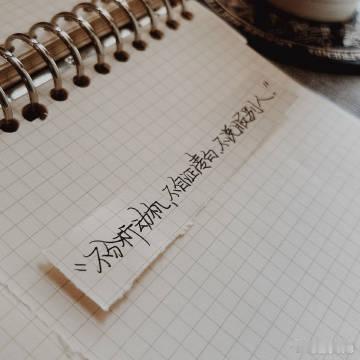 “不分析动机，不自证清白，不说服别人。”